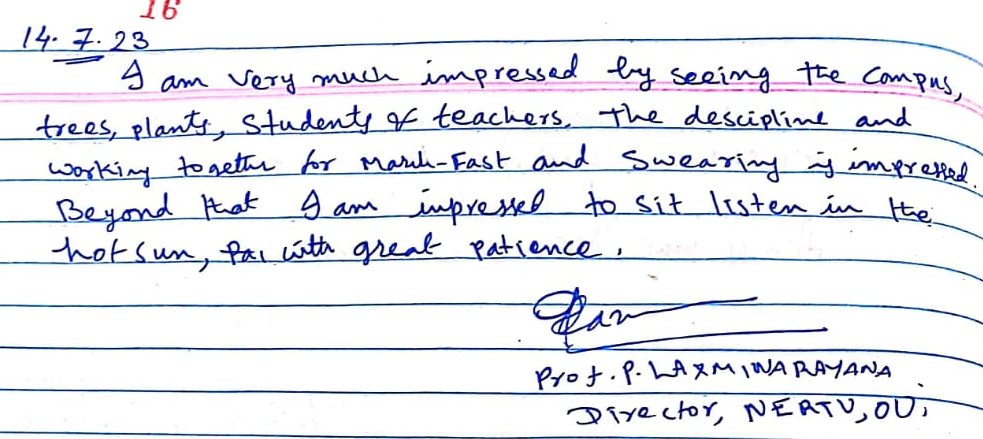 16
14. 7. 23
I am very much impressed by seeing the Campus,
trees, plants, Students & teachers. The descipline and
working together for March-Fast and Swearing is impressed.
Beyond that I am inpressed to sit listen in the
hot sun, with great patience.
Prof. P. LAXMINARAYANA
Director, NERTU, OU.